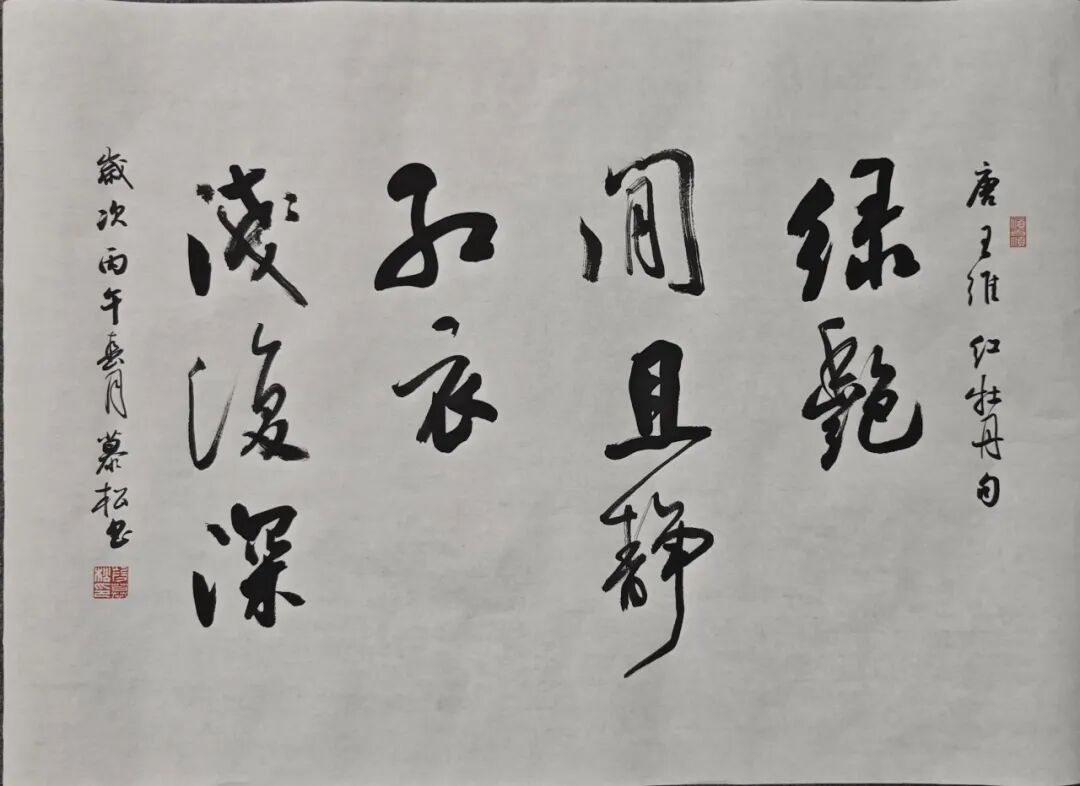 唐王维红牡丹句
绿艳
闲且静
红衣
浅复深
岁次丙午春月慕松书